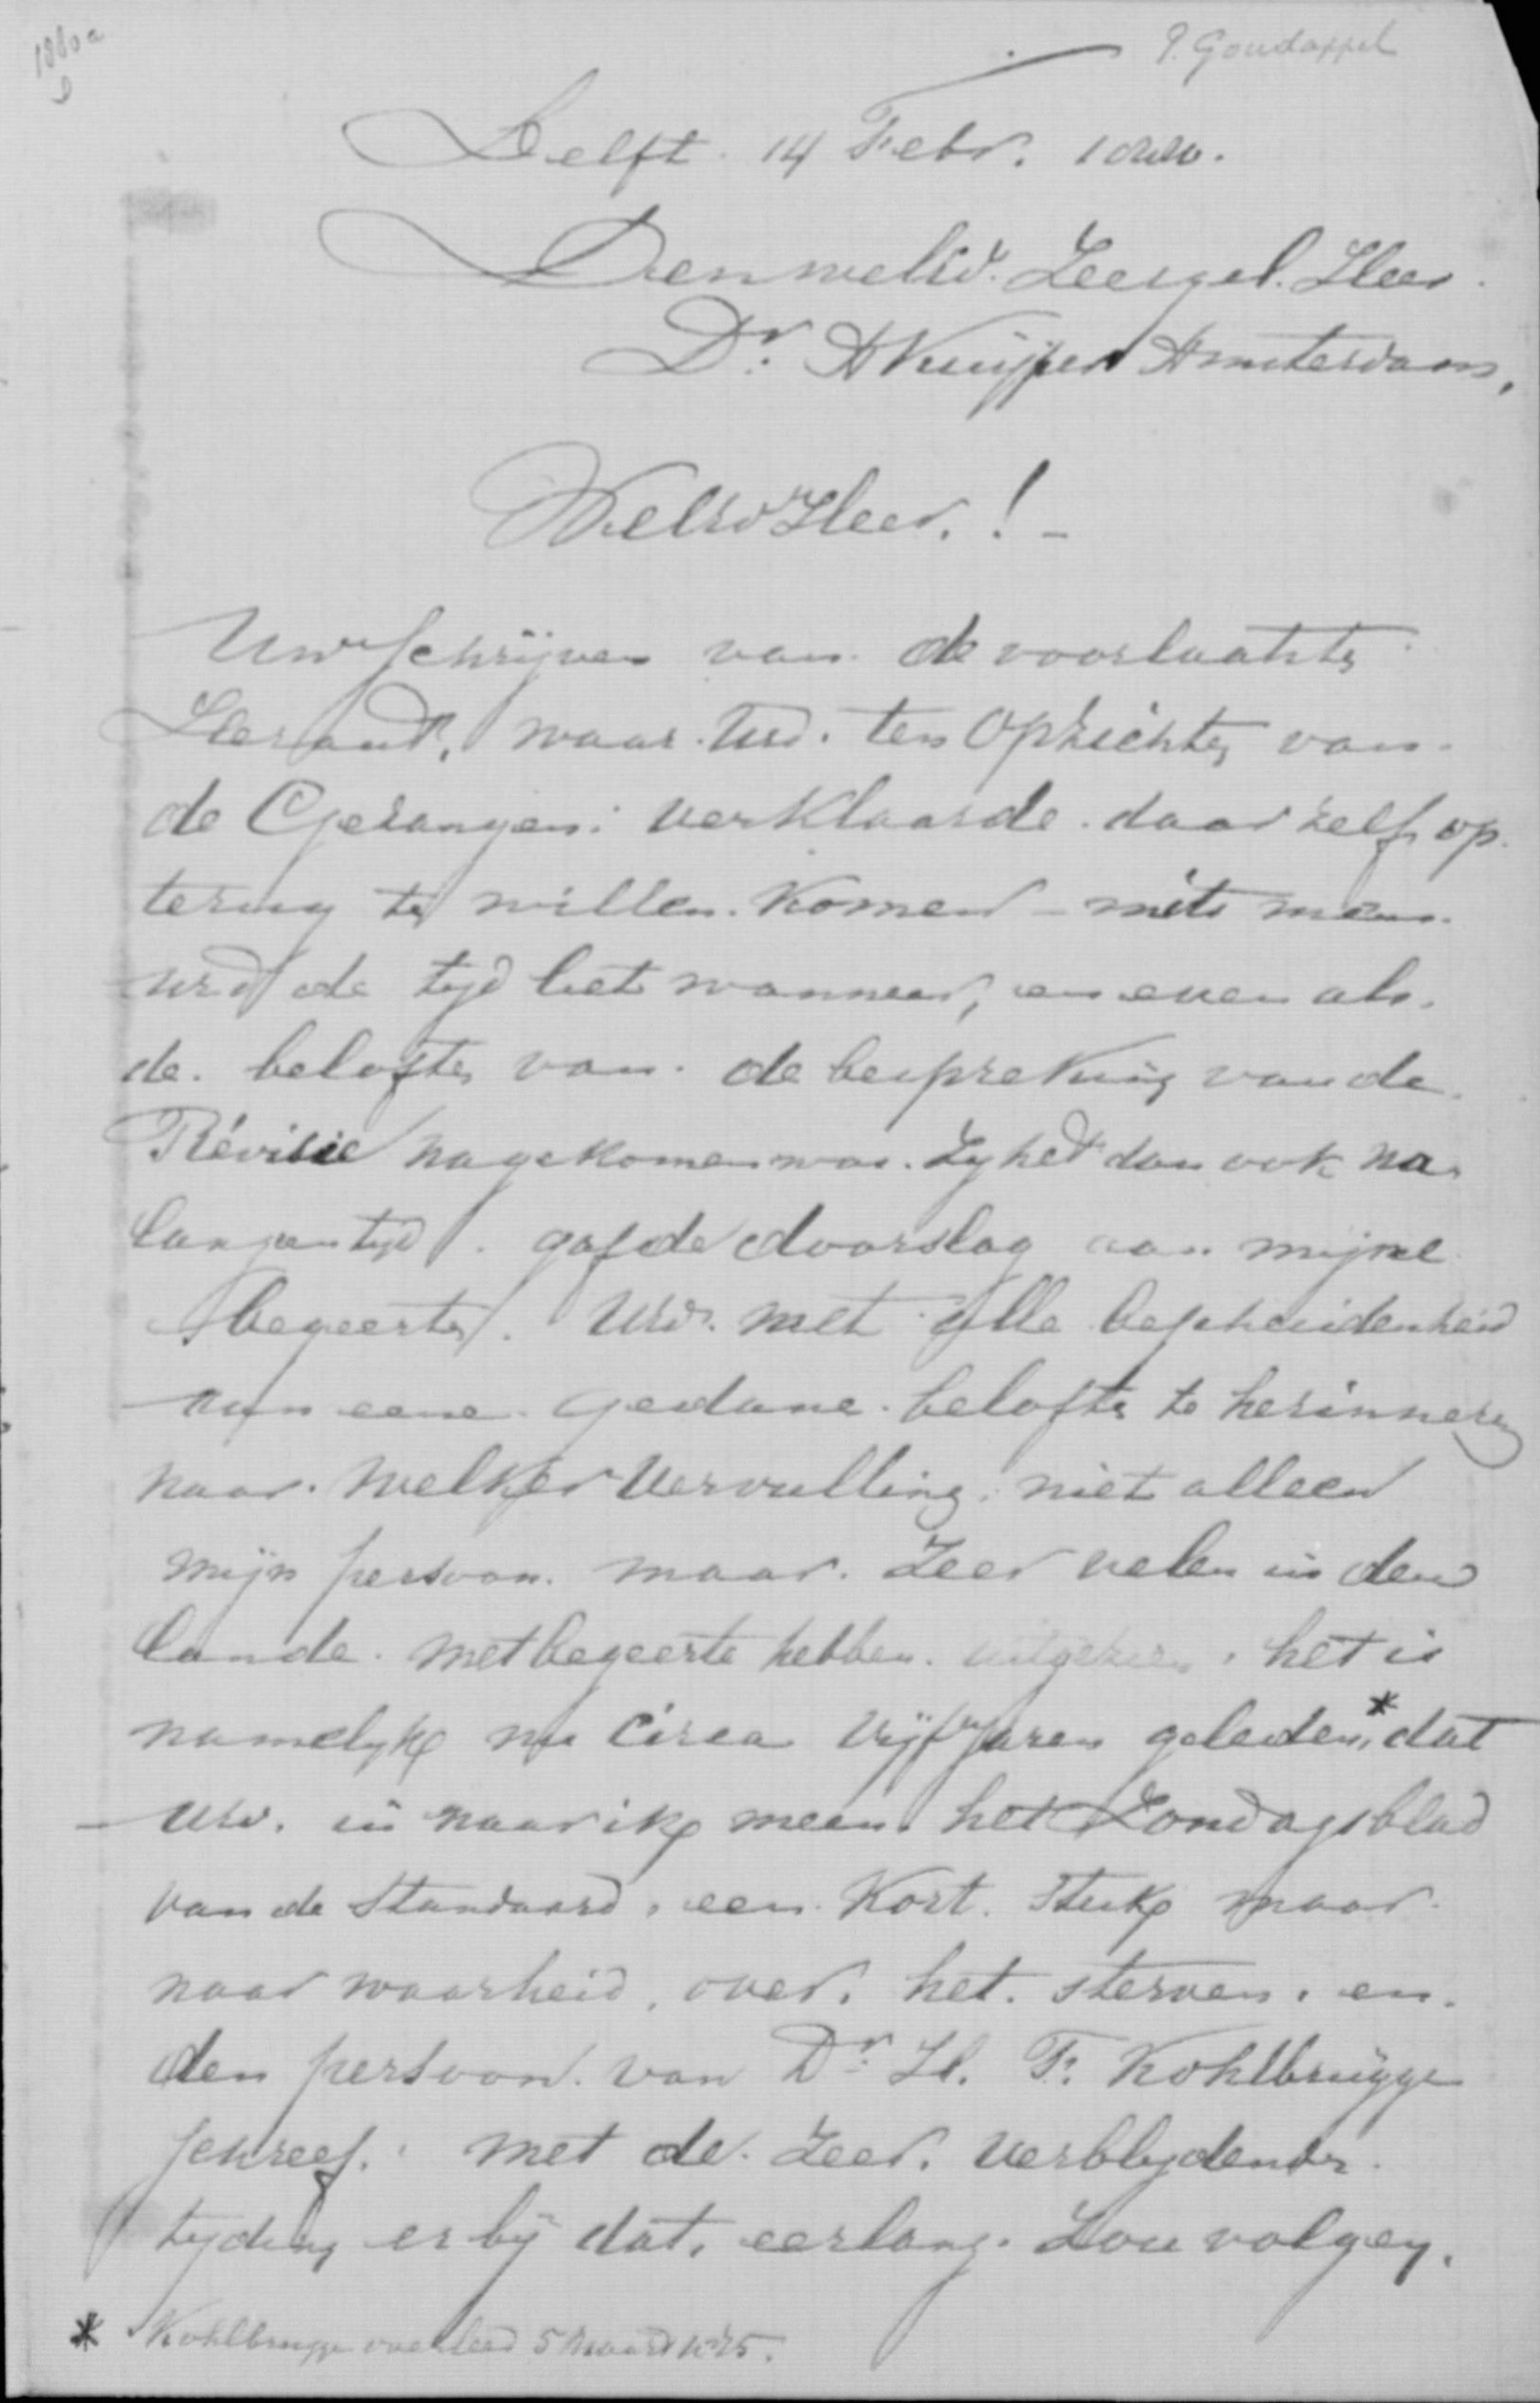 1880a
P. Goudappel
Delft 14 Febr. 1880.
Den welEd. Zeergel. Heer
Dr. A Kuijper Amsterdam,
WelEdHeer,! -
Uw schrijven van de voorlaatste
Heraut, waar UEd. ten opzichte van
de Gezangen: verklaarde daar zelf op
terug te willen komen - mits men
UEd de tijd liet wanneer, en even als
de belofte van de bespreking van de
Révisie nagekomen was. Zy het dan ook na
langen tijd. gaf de doorslag aan mijne
begeerte. UEd. met alle bescheidenheid
aan eene gedane belofte te herinneren
naar welker vervulling niet alleen
mijn persoon. maar. Zeer velen in den
lande. met begeerte hebben. uitgezien, het is
namelyk nu circa vijf jaren geleden,* dat
UEd. in naar ik meen het Zondagsblad
van de Standaard, een Kort. stuk maar
naar waarheid, over. het. sterven. en
den persoon. van Dr. H. F. Kohlbrügge
schreef. met de. Zeer. verblydende
tyding er bij dat. eerlang. Zou volgen.
* Kohlbrugge overleed 5 Maart 1875.